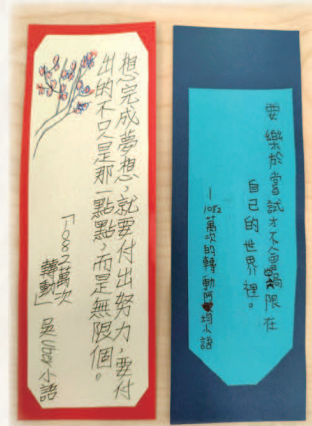 想完成夢想,就要付出努力,要付
出的不只是那一點點,而是無限個。
「1082萬次
轉動」 吳 小語
要樂於嘗試才不會侷限在
自己的世界裡。
—1082萬次的轉動 小語